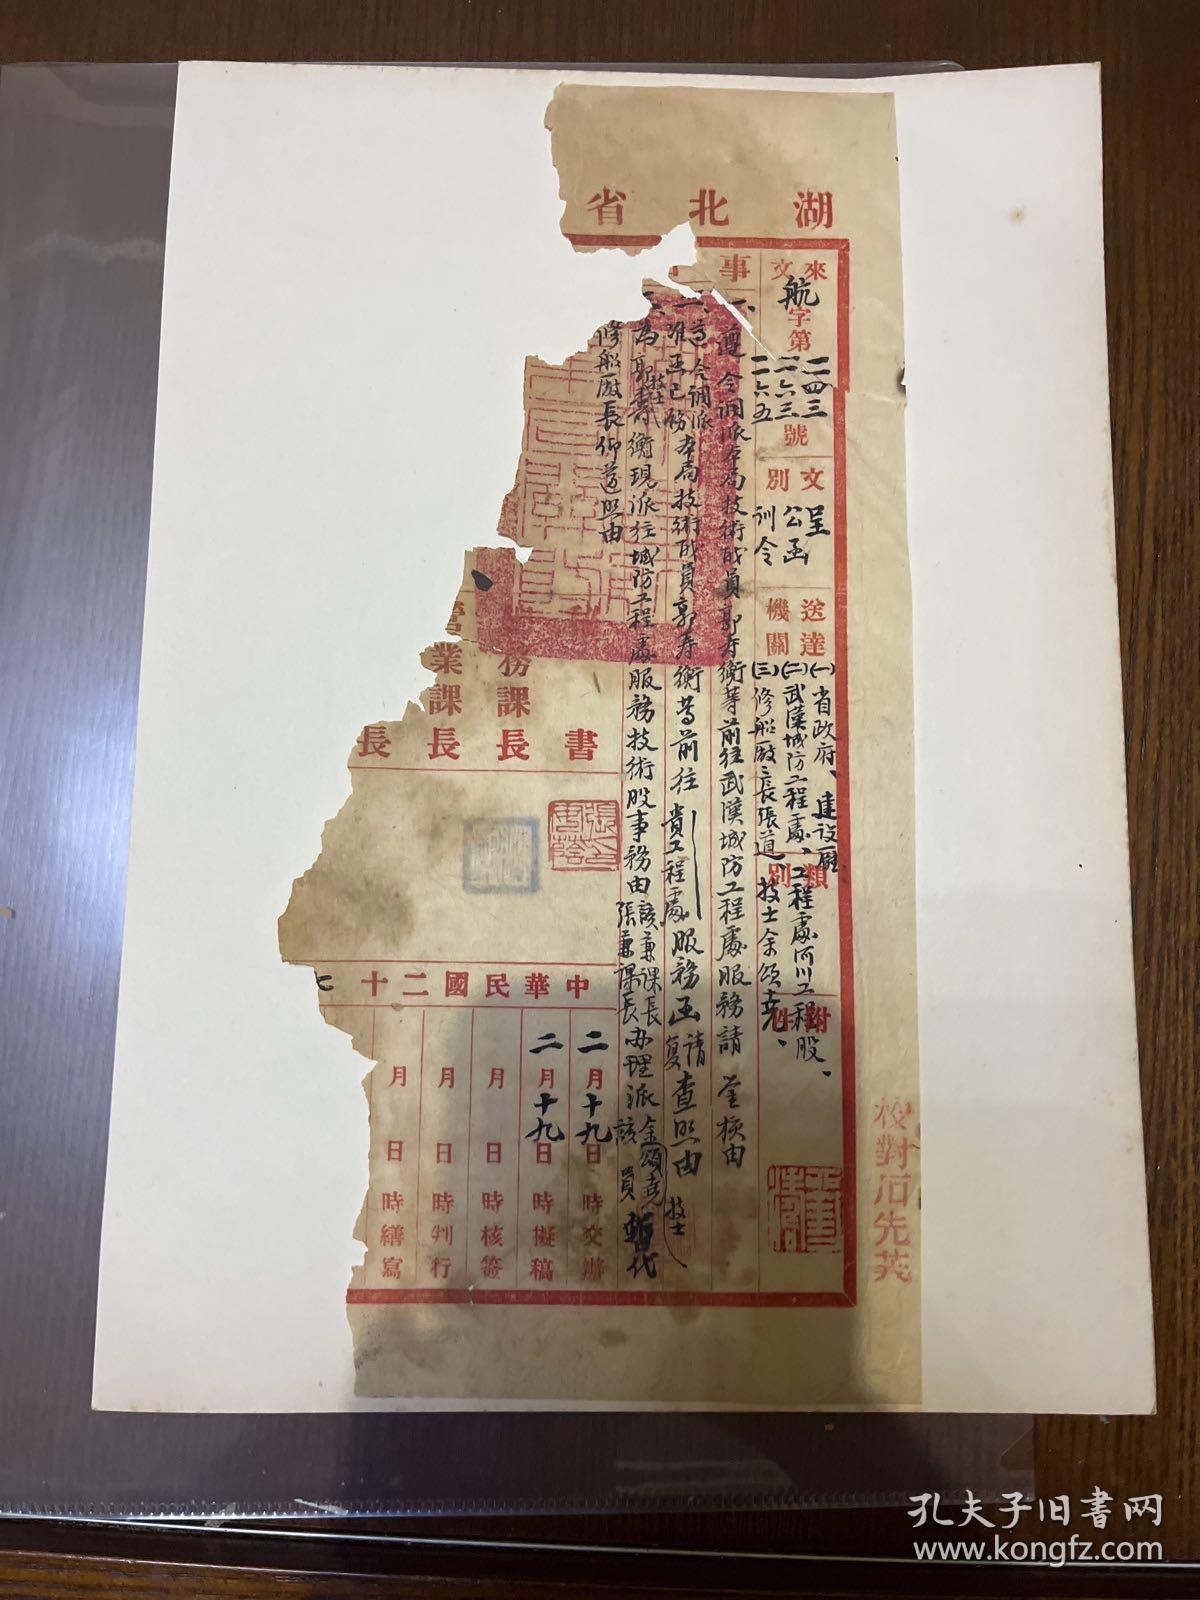 湖北省
來文
航字第二四三 二六三 二六五號
文別
呈
公函
訓令
送達機關
(一)省政府、建設廳
(二)武漢城防工程處、工程處河川工程股、
(三)修船廠長張道、技士余頌堯、
類別
附件
事
一、遵令調派本局技術職員郭壽衡等前往武漢城防工程處服務請 鑒核由
二、准函已飭本局技術職員郭壽衡等前往 貴工程處服務函請查照由
遵令調派
復
為郭壽衡現派往城防工程處服務技術股事務由該兼課長 張兼課長办理派余頌堯 該員暫代
技士
技士
修船廠長仰遵照由
書
務課長
營業課長
長
張
中華民國二十七
二月十九日 時交辦
二月十九日 時擬稿
月 日 時核簽
月 日 時判行
月 日 時繕寫
校對石先英
孔夫子旧书网
www.kongfz.com